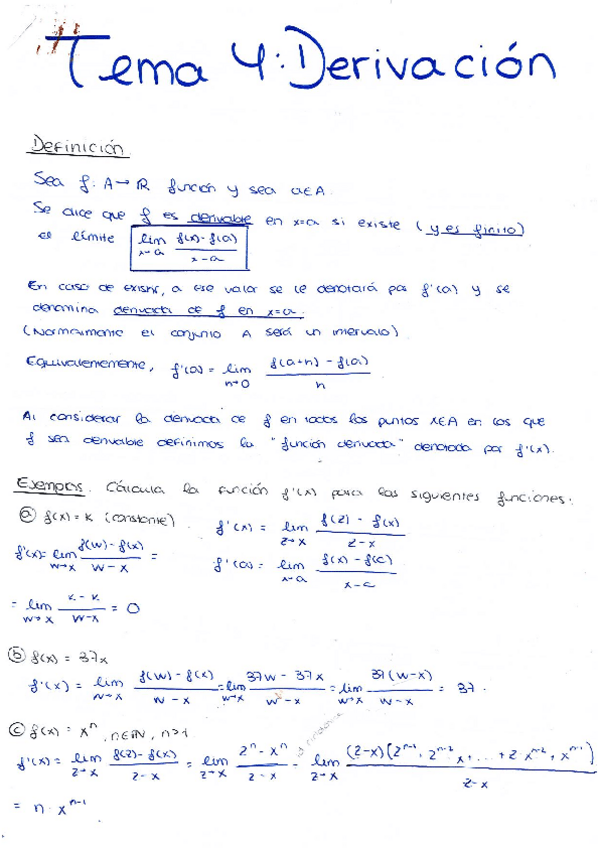 Tema 4: Derivación
Definición.
Sea f: A→ℝ función y sea a∈A.
Se dice que f es derivable en x=a si existe (y es finito)
el límite lim x→a (f(x)-f(a))/(x-a)
En caso de existir, a ese valor se le denotará por f'(a) y se
denomina derivada de f en x=a.
(Normalmente el conjunto A será un intervalo)
Equivalentemente, f'(a) = lim h→0 (f(a+h) - f(a))/h
Al considerar la derivada de f en todos los puntos x∈A en los que
f sea derivable definimos la "función derivada" denotada por f'(x).
Ejemplos. Cálcula la función f'(x) para las siguientes funciones:
ⓐ f(x) = k (constante). f'(x) = lim z→x (f(z) - f(x))/(z-x)
f'(x) = lim w→x (f(w)-f(x))/(w-x) = f'(a) = lim x→a (f(x) - f(a))/(x-a)
= lim w→x (k-k)/(w-x) = 0
ⓑ f(x) = 37x
f'(x) = lim w→x (f(w)-f(x))/(w-x) = lim w→x (37w-37x)/(w-x) = lim w→x (37(w-x))/(w-x) = 37.
ⓒ f(x) = xⁿ, n∈ℕ, n>1
f'(x) = lim z→x (f(z)-f(x))/(z-x) = lim z→x (zⁿ-xⁿ)/(z-x) = lim z→x ((z-x)(zⁿ⁻¹+zⁿ⁻²x+...+z·xⁿ⁻²+xⁿ⁻¹))/(z-x)
= n·xⁿ⁻¹